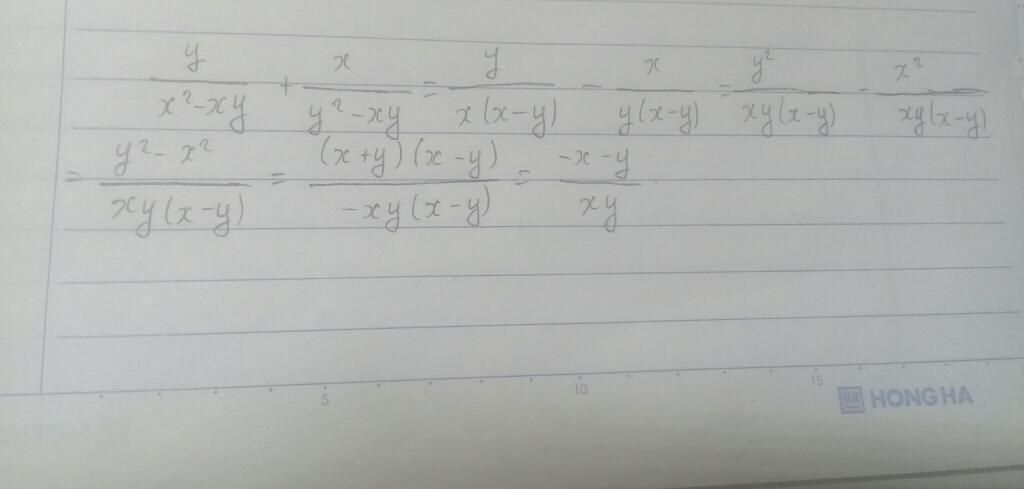 y/(x²-xy) + x/(y²-xy) = y/(x(x-y)) - x/(y(x-y)) = y²/(xy(x-y)) - x²/(xy(x-y))
= (y²-x²)/(xy(x-y)) = ((x+y)(x-y))/(-xy(x-y)) = (-x-y)/(xy)
5 10 15
HONG HA